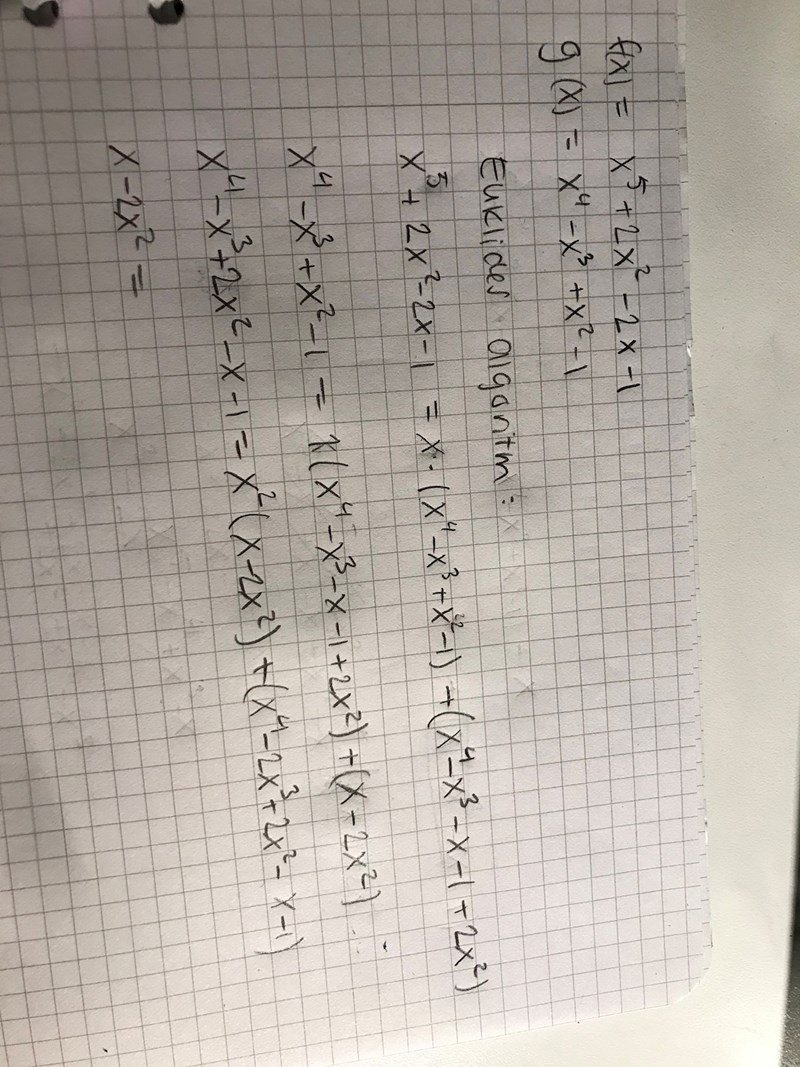 f(x) = x⁵ + 2x² - 2x - 1
g(x) = x⁴ - x³ + x² - 1
Euklides algoritm :
x⁵ + 2x² - 2x - 1 = x · (x⁴ - x³ + x² - 1) + (x⁴ - x³ - x - 1 + 2x²)
x⁴ - x³ + x² - 1 = 1(x⁴ - x³ - x - 1 + 2x²) + (x - 2x²)
x⁴ - x³ + 2x² - x - 1 = x²(x - 2x²) + (x⁴ - 2x³ + 2x² - x - 1)
x - 2x² =